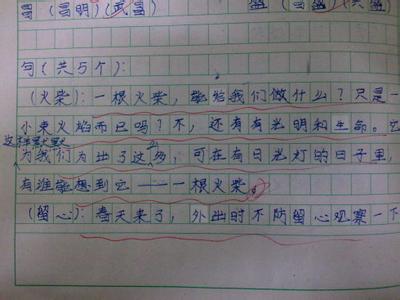 (昌明)(武昌)
句(共5个):
(火柴):一根火柴,能给我们做什么?只是一
小束火焰而已吗?不,还有有光明和生命。它
这样默默
为我们为出了这多,可在有日光灯的日子里,
有谁能想到它——一根火柴。
(留心):春天来了,外出时不防留心观察一下